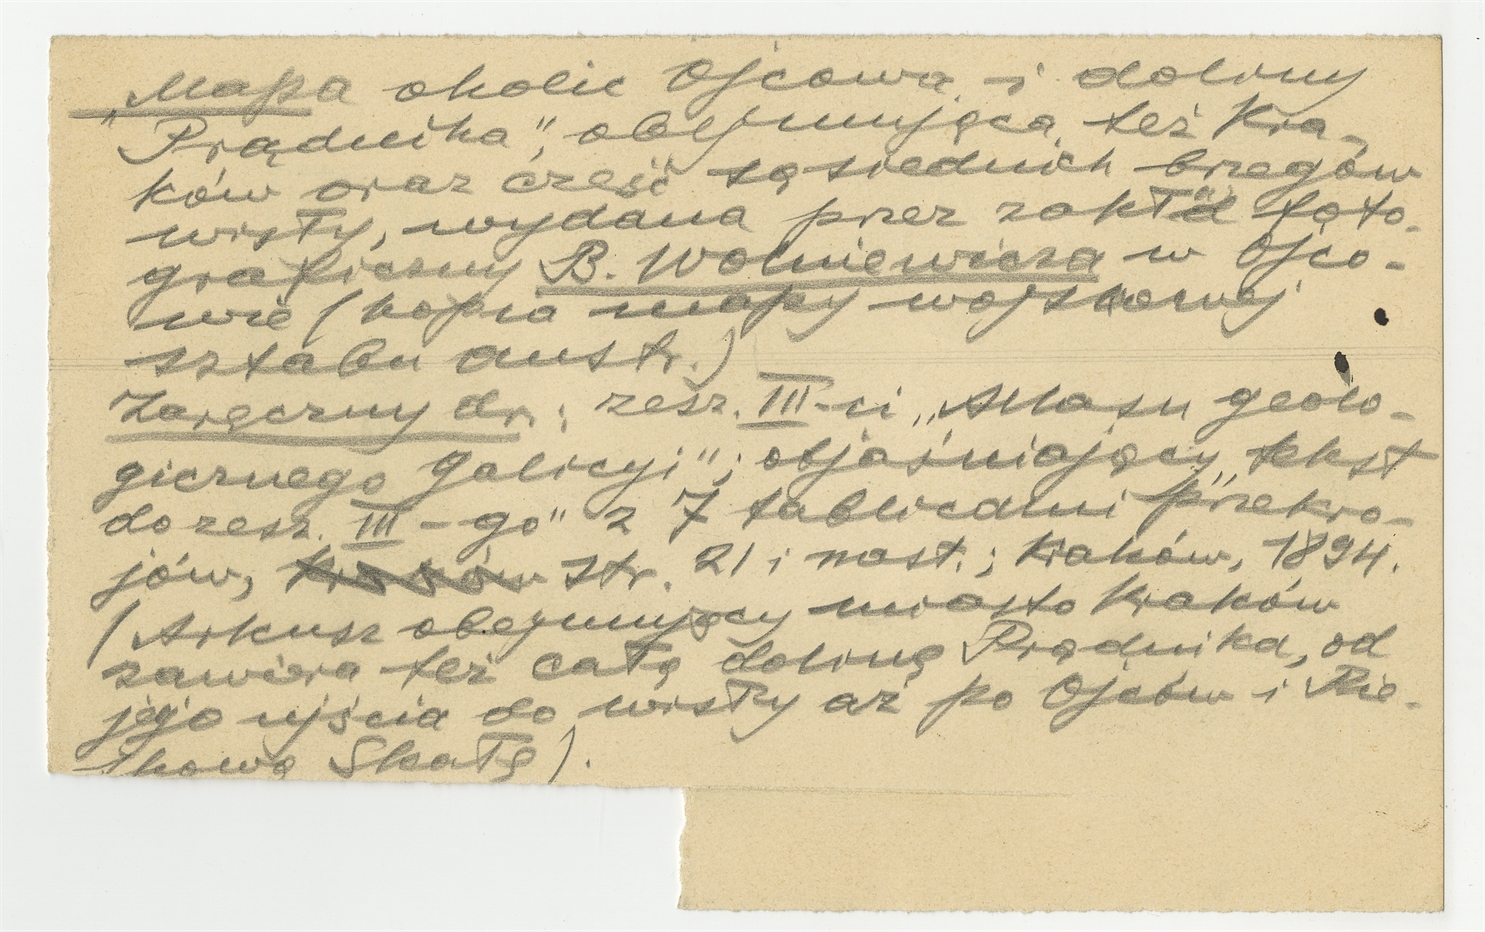 „Mapa okolic Ojcowa i doliny
Prądnika”, obejmująca też Kra-
ków oraz część sąsiednich brzegów
Wisły, wydana przez zakład foto-
graficzny B. Wolniewicza w Ojco-
wie (kopia mapy wojskowej
sztabu austr.)
Zaręczny dr.; zesz. III-ci „Atlasu geolo-
gicznego Galicyi”; objaśniający „tekst
do zesz. III-go” z 7 tablicami przekro-
jów, str. 21 i nast.; Kraków, 1894.
(Arkusz obejmujący miasto Kraków
zawiera też całą dolinę Prądnika, od
jego ujścia do Wisły aż po Ojców i Pie-
skową Skałę).